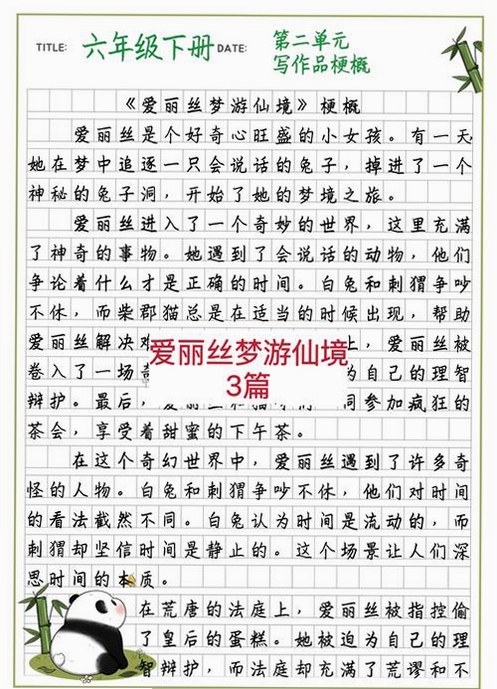 TITLE: 六年级下册 DATE: 第二单元
写作品梗概
《爱丽丝梦游仙境》梗概
爱丽丝是个好奇心旺盛的小女孩。有一天
她在梦中追逐一只会说话的兔子，掉进了一个
神秘的兔子洞，开始了她的梦境之旅。
爱丽丝进入了一个奇妙的世界，这里充满
了神奇的事物。她遇到了会说话的动物，他们
争论着什么才是正确的时间。白兔和刺猬争吵
不休，而柴郡猫总是在适当的时候出现，帮助
爱丽丝解决 上，爱丽丝被
卷入了一场 为自己的理智
辩护。最后， 同参加疯狂的
爱丽丝梦游仙境
3篇
茶会，享受着甜蜜的下午茶。
在这个奇幻世界中，爱丽丝遇到了许多奇
怪的人物。白兔和刺猬争吵不休，他们对时间
的看法截然不同。白兔认为时间是流动的，而
刺猬却坚信时间是静止的。这个场景让人们深
思时间的本质。
在荒唐的法庭上，爱丽丝被指控偷
了皇后的蛋糕。她被迫为自己的理
智辩护，而法庭却充满了荒谬和不